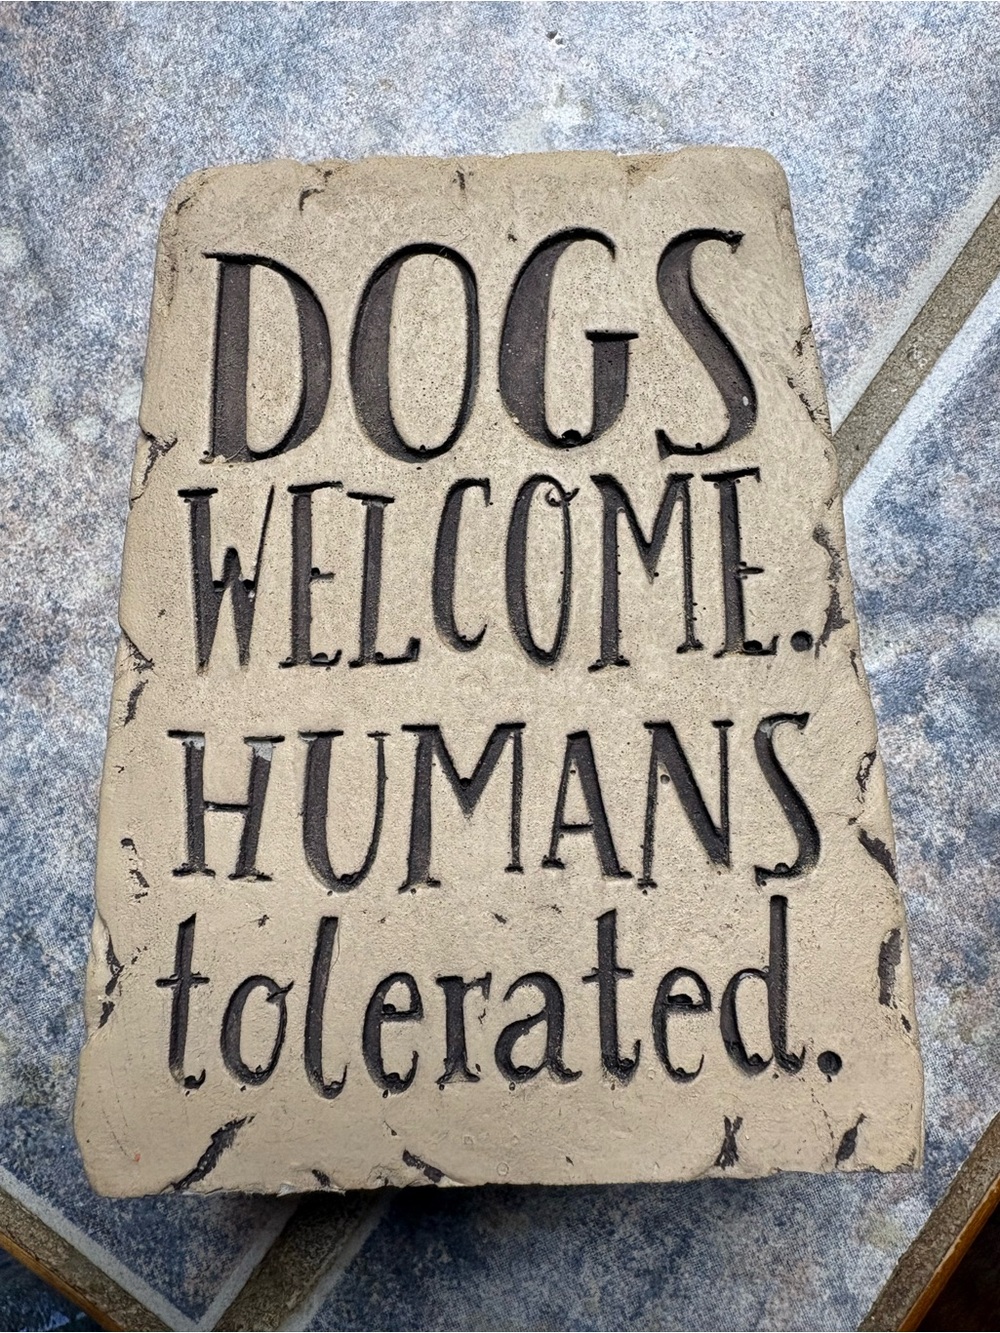 DOGS
WELCOME.
HUMANS
tolerated.